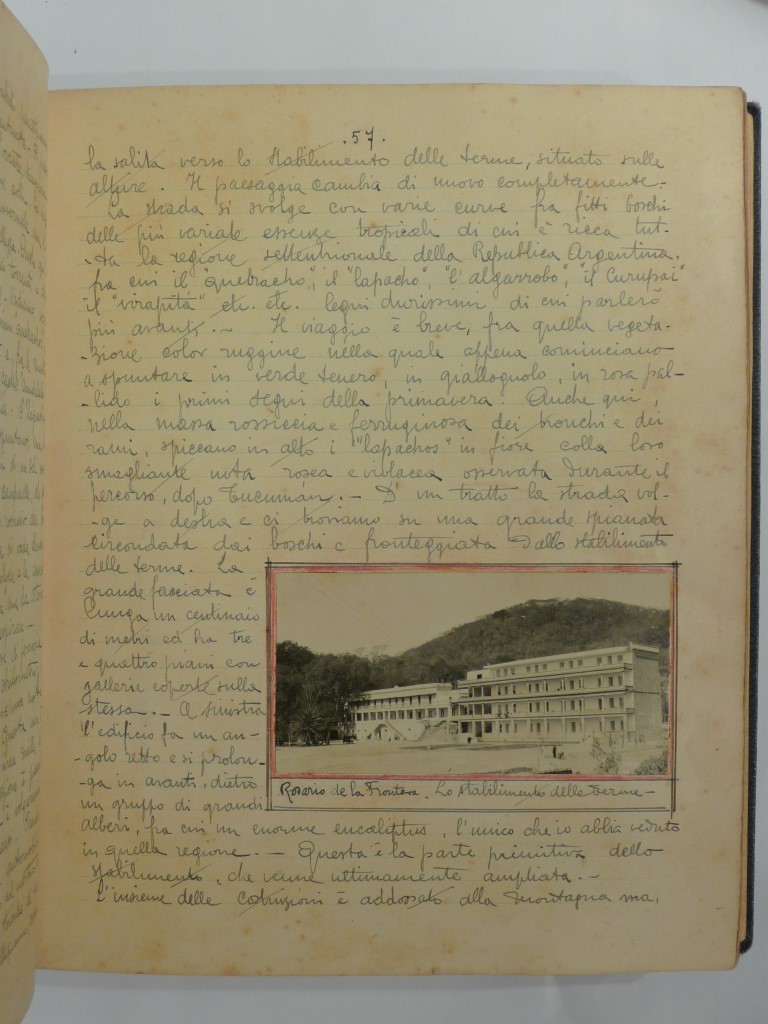 .57.
la salita verso lo stabilimento delle terme, situato sulle
alture. Il paesaggio cambia di nuovo completamente.
La strada si svolge con varie curve fra fitti boschi
delle più variate essenze tropicali di cui è ricca tut-
-ta la regione settentrionale della Republica Argentina.
fra cui il "quebracho", il "lapacho", "l'algarrobo", "il Curupai"
il "virapitá" etc. etc. legni durissimi di cui parlerò
più avanti. ~ Il viaggio è breve, fra quella vegeta-
-zione color ruggine nella quale appena cominciano
a spuntare in verde tenero, in giallognolo, in rosa pal-
-lido i primi segni della primavera. Anche qui,
nella massa rossiccia e ferruginosa dei tronchi e dei
rami, spiccano in alto i "lapachos" in fiore colla loro
smagliante nota rosea e violacea osservata durante il
percorso, dopo Tucumán. — D'un tratto la strada vol-
-ge a destra e ci troviamo su una grande spianata
circondata dai boschi e fronteggiata dallo stabilimento
delle terme. La
grande facciata è
lunga un centinaio
di metri ed ha tre
e quattro piani con
gallerie coperte sulla
stessa. — A sinistra
l'edificio fa un an-
-golo retto e si prolun-
-ga in avanti, dietro
un gruppo di grandi
alberi, fra cui un enorme eucaliptus, l'unico che io abbia veduto
in quella regione. — Questa è la parte primitiva dello
stabilimento, che venne ultimamente ampliata. —
L'insieme delle costruzioni è addossato alla montagna ma,
Rosario de la Frontera. Lo stabilimento delle Terme —